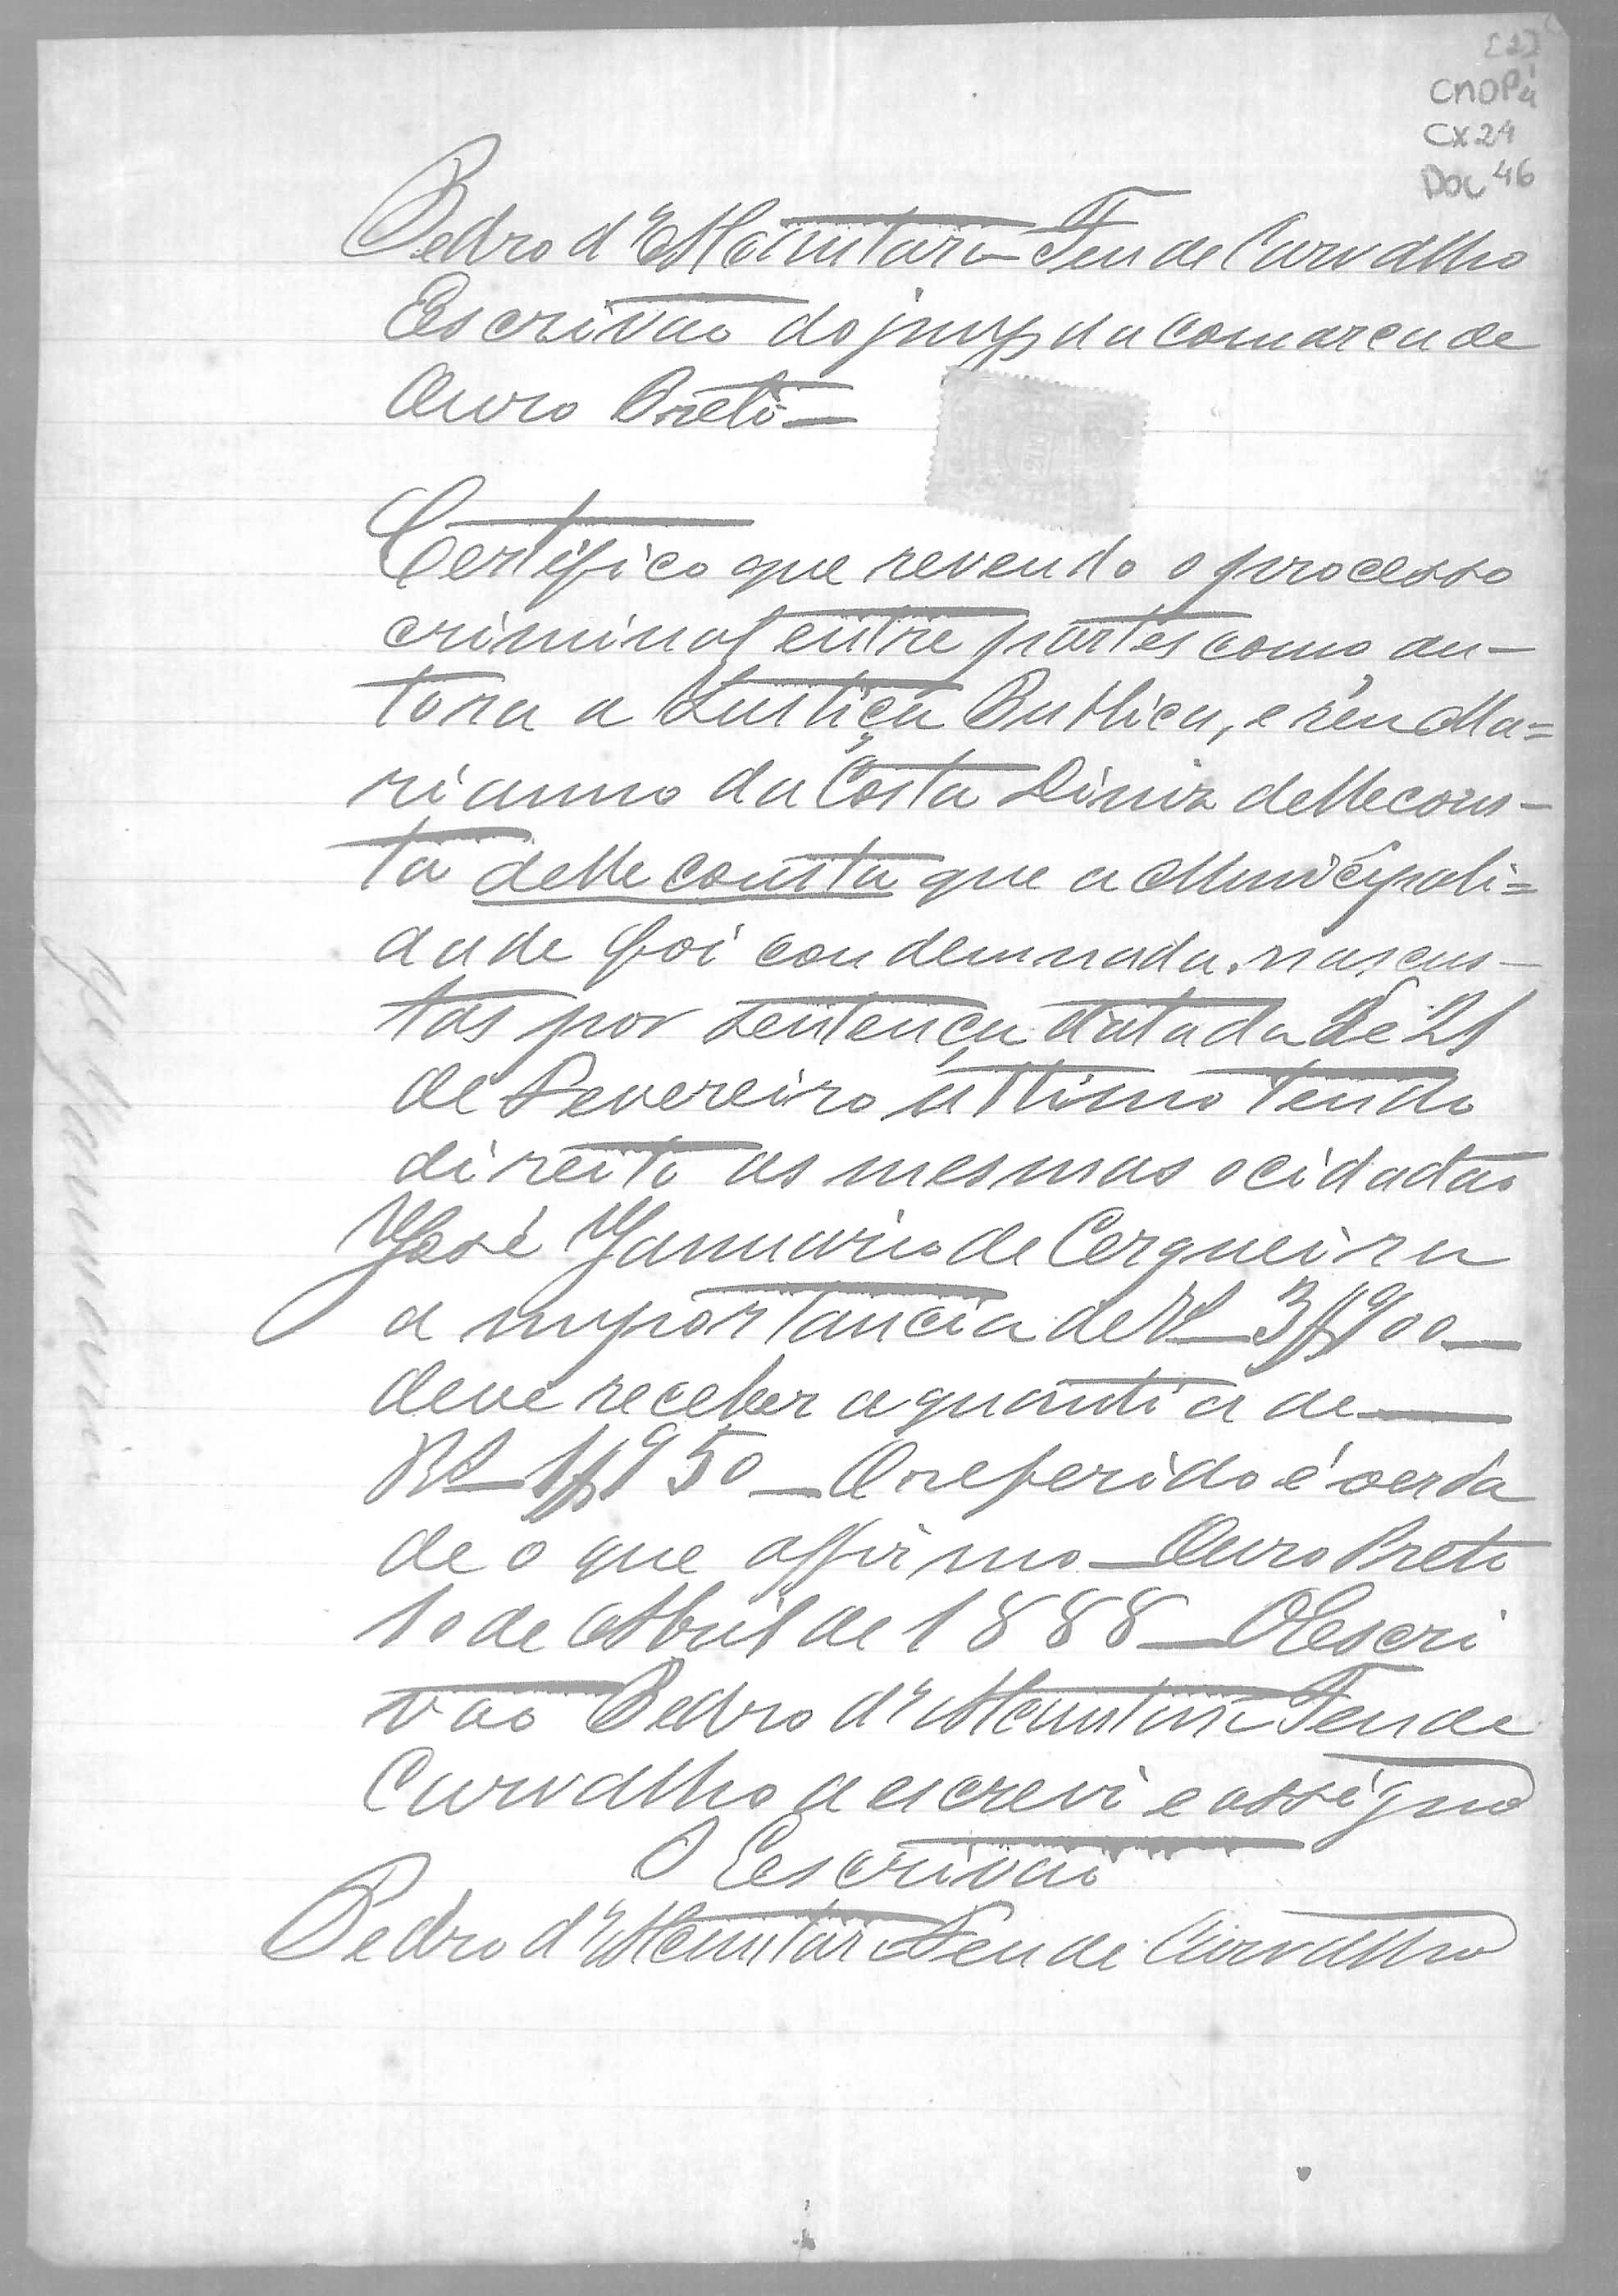 [2]
CMOP
CX 24
DOC 46
Pedro d'Alcantara Feu de Carvalho
Escrivão do jury da comarca de
Ouro Preto —
Certifico que revendo o processo
criminal entre partes como au-
tora a Justiça Publica, e réu Ma=
rianno da Costa Diniz delle cons-
ta delle consta que a Municipali=
dade foi condemnada nas cus-
tas por sentença datada de 21
de Fevereiro ultimo tendo
direito as mesmas o cidadão
José Januario de Cerqueira
a importancia de Rs 3$900 —
deve receber a quantia de —
Rs 1$950 — O referido é verda
de o que affirmo — Ouro Preto
10 de Abril de 1888 — O Escri
vão Pedro d'Alcantara Feu de
Carvalho a escrevi e assigno
O Escrivão
Pedro d'Alcantara Feu de Carvalho